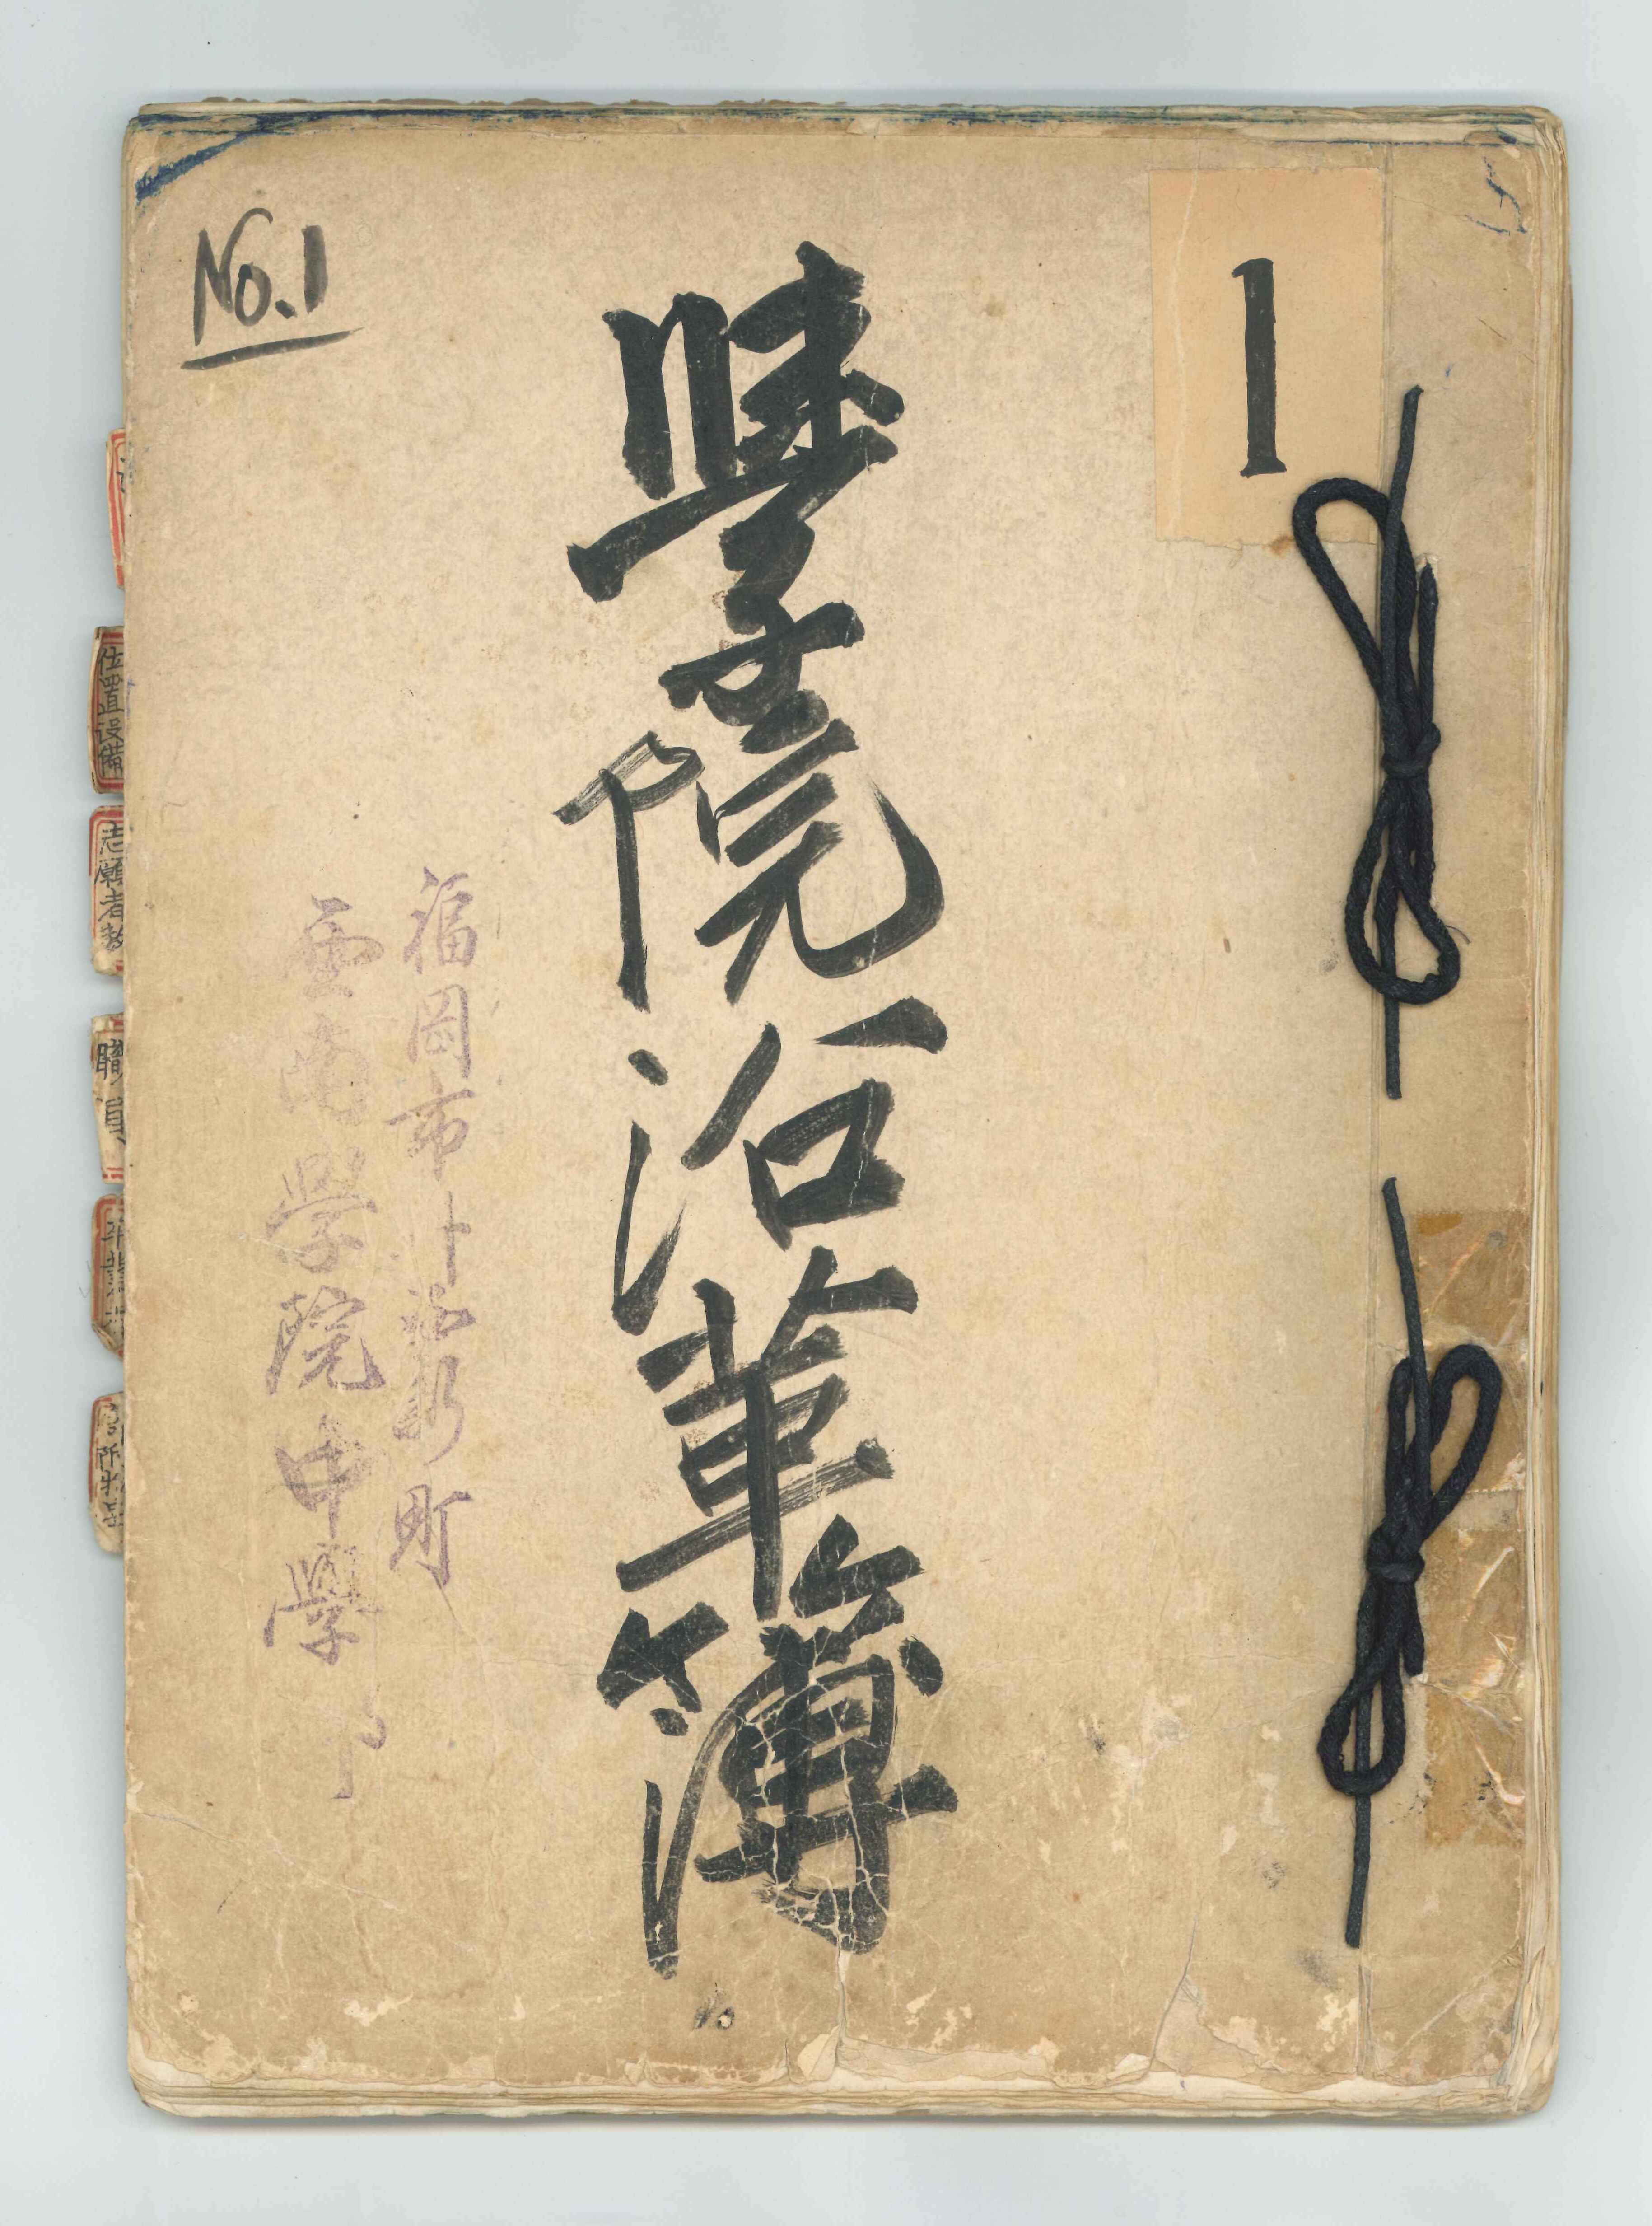 1
學院沿革簿
No.1
福岡市外西新町
西南學院中學部
位置設備
志願者
職員
卒業